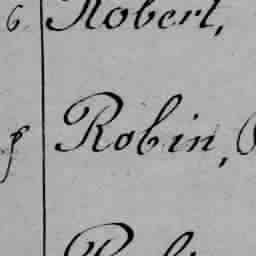 6 Robert,
Robin,